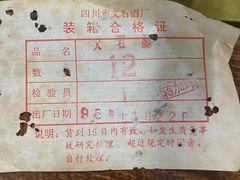 四川省文君酒厂
装箱合格证
品名 文君
数 12
检验员 1
出厂日期 95年 月22日
说明：货到15日内有效，如发生质量事
故研究处理。超过规定时间者，
自行处理。